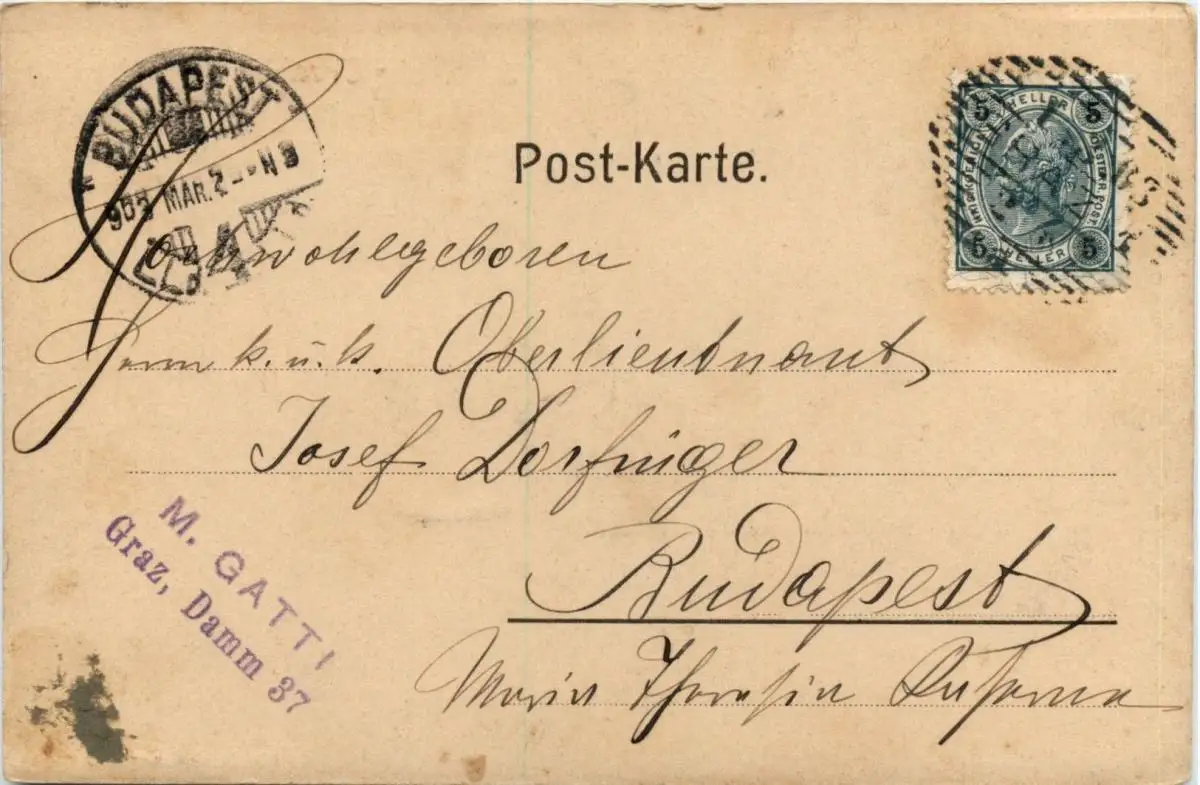 BUDAPEST
903 MAR. 2
Post-Karte.
5 HELLER 5
OESTERR. POST.
5 HELLER 5
Hochwohlgeboren
Herrn k. u. k. Oberlieutnant
Josef Dorfinger
Budapest
Maria Theresia Caserne
M. GATTI
Graz, Damm 37